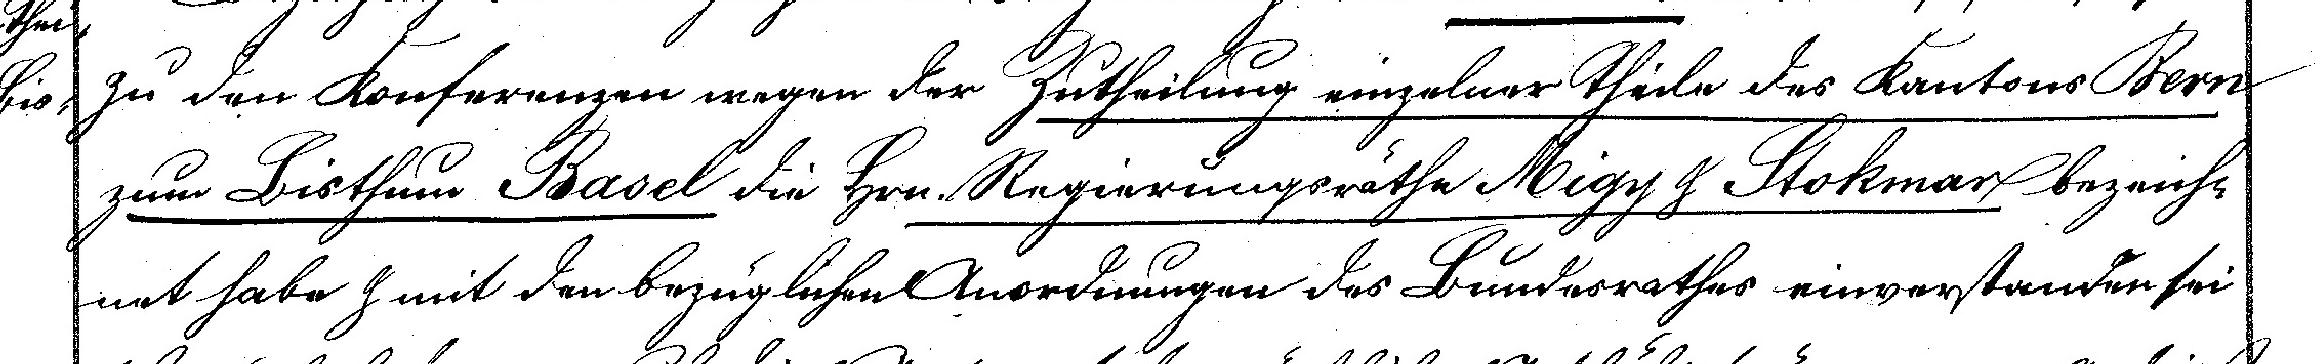 zu den Konferenzen wegen der Zutheilung einzelner Theile des Kantons Bern
zum Bisthum Basel die Hrn. Regierungsräthe Migy & Stokmar bezeich-
net habe & mit den bezüglichen Anordnungen des Bundesrathes einverstanden sei